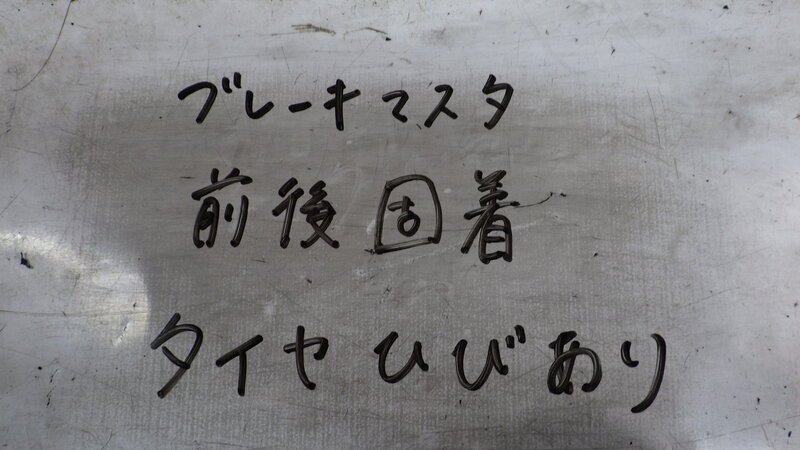 ブレーキマスタ
前後固着
タイヤひびあり